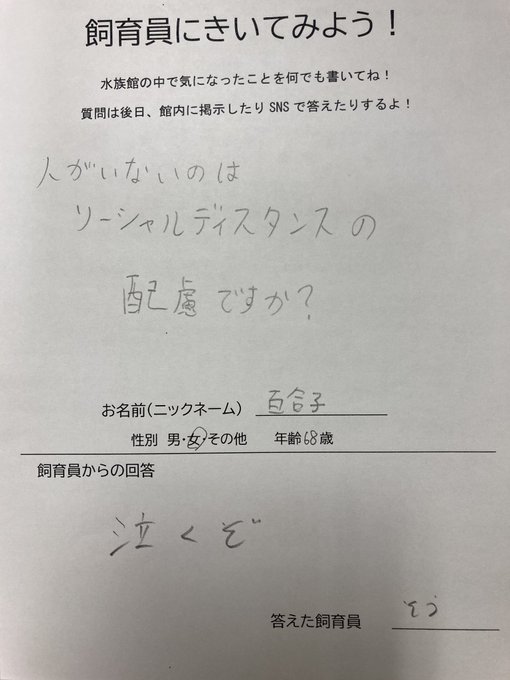 飼育員にきいてみよう！
水族館の中で気になったことを何でも書いてね！
質問は後日、館内に掲示したり SNS で答えたりするよ！
人がいないのは
ソーシャルディスタンスの
配慮ですか？
お名前（ニックネーム） 百合子
性別 男・女・その他 年齢68歳
飼育員からの回答
泣くぞ
答えた飼育員